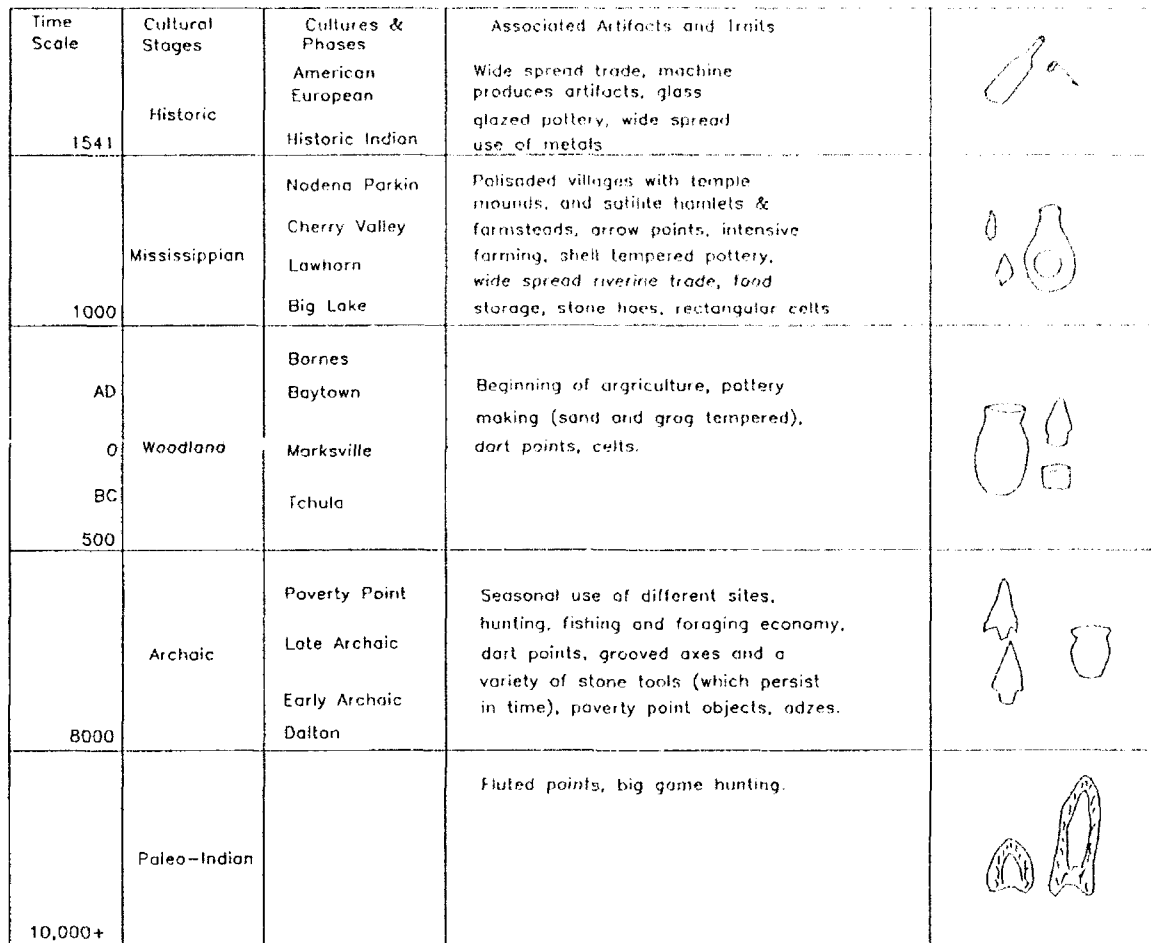 Time Scale
Cultural Stages
Cultures & Phases
Associated Artifacts and Traits
1541
Historic
American
European
Historic Indian
Wide spread trade, machine
produces artifacts, glass
glazed pottery, wide spread
use of metals
1000
Mississippian
Nodena Parkin
Cherry Valley
Lawhorn
Big Lake
Palisaded villages with temple
mounds, and satilite hamlets &
farmsteads, arrow points, intensive
farming, shell tempered pottery,
wide spread riverine trade, food
storage, stone hoes, rectangular celts
AD
0
BC
500
Woodland
Bornes
Baytown
Marksville
Tchula
Beginning of argriculture, pottery
making (sand and grog tempered),
dart points, celts.
8000
Archaic
Poverty Point
Late Archaic
Early Archaic
Dalton
Seasonal use of different sites,
hunting, fishing and foraging economy,
dart points, grooved axes and a
variety of stone tools (which persist
in time), poverty point objects, adzes.
10,000+
Paleo-Indian
Fluted points, big game hunting.